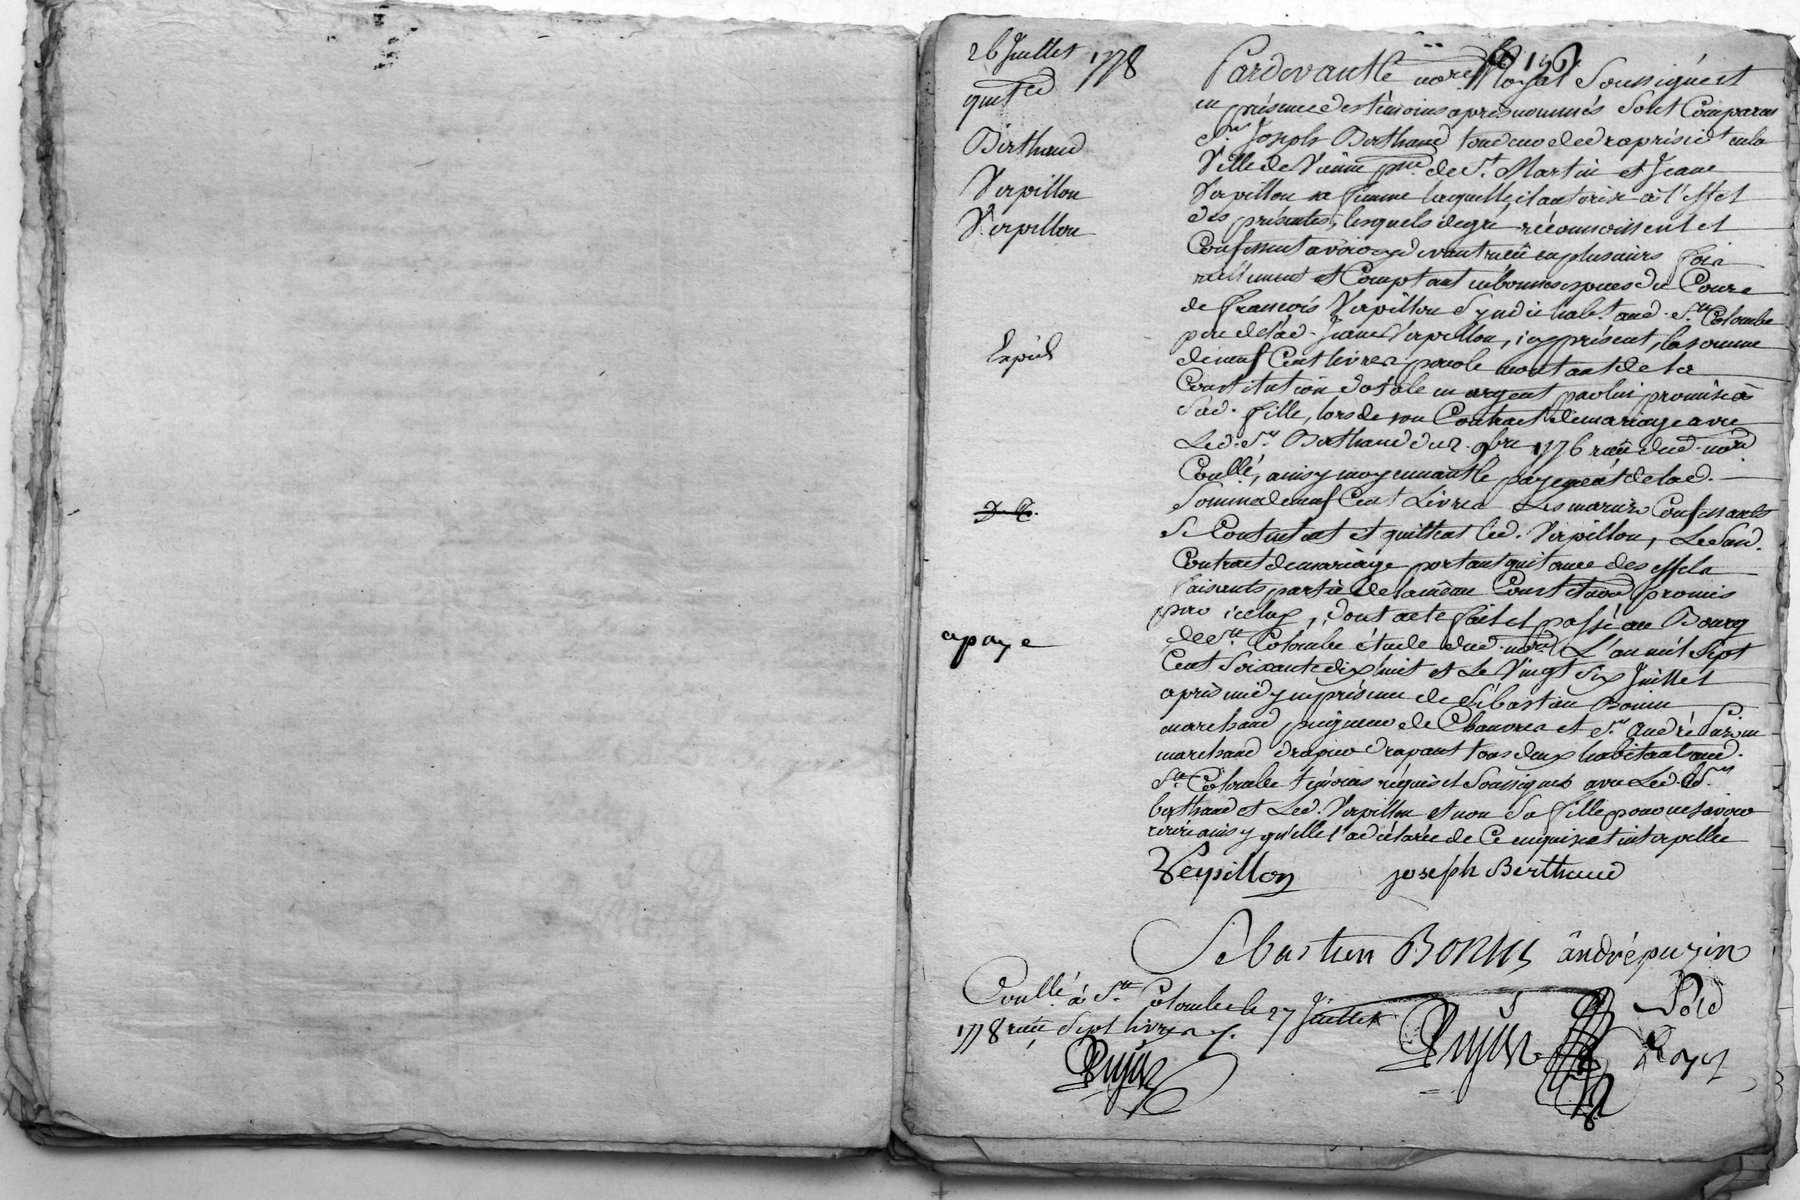 26 Juillet 1778
quitce
Berthaud
Verpillou
Verpillou
Expié
apaye
Pardevant le nore Royal Soussigné et
en présence des témoins après nommés sont Comparus
sr. Joseph Berthaud tondeur de draps résidt en la
Ville de Vienne psse. de St. Martin et Jeane
Verpillou sa femme laquelle il autorise à l'effet
des présentes, lesquels de gré réconnoissent et
Confessent avoir cy devant reçu en plusieurs fois
réellement et Comptant en bonnes espèces du Cours
de François Verpillou Syndic habt. aud. Ste. Colombe
père de lad. Jeane Verpillou, icy présent, la somme
de neuf Cent livres pour le montant de la
Constitution dotale en argent par lui promise à
Sad. fille, lors de son Contract de mariage avec
Led. Sr. Berthaud du 2. 9bre 1776 reçu dud. nore
Coullé, ainsy moyennant le payement de lad.
Somme de neuf Cent Livres Les mariés Confessants
se Contentent et quittent led. Verpillou, Led.
Contract de mariage portant quitance des effets
faisants partie de la même Constitution promis
par iceluy, dont acte fait et passé au Bourg
de Ste. Colombe étude dud. nore. L'an mil Sept
Cent Soixante dix huit et Le Vingt Six Juillet
après midy en présence de Sébastien Bonin
marchand peigneur de Chanvres et Sr. André Puzin
marchand drapier drapant tous deux habitants aud.
Ste. Colombe témoins réquis et Soussignés avec Led. Sr.
berthaud et Led. Verpillou et non Sa fille pour ne savoir
écrire ainsy qu'elle l'a déclarée de Ce enquise et interpellée
Verpillou joseph Berthaud
Sébastien Bonin ândré puzin
Coullé à Ste Colombe le 27 Juillet
1778 reçu Sept livres
Royal